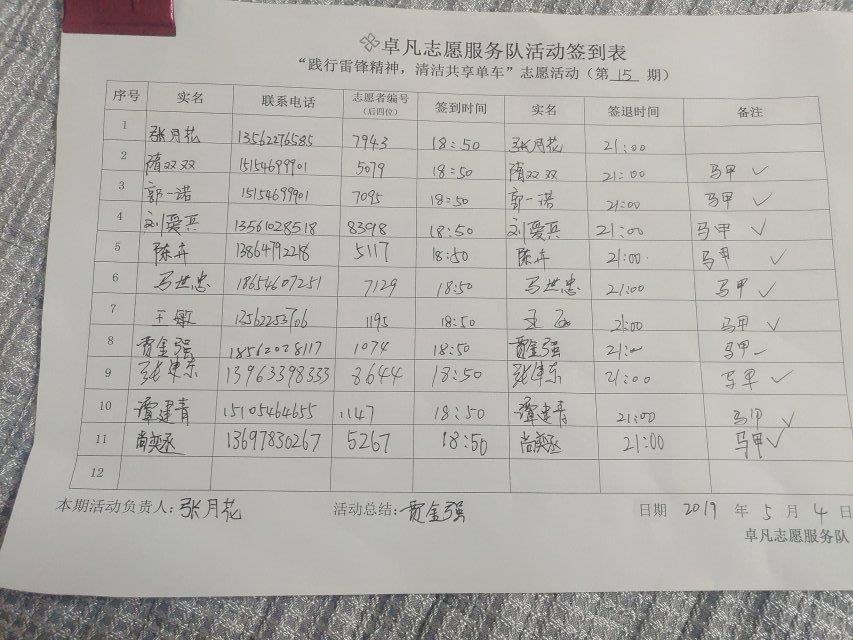 卓凡志愿服务队活动签到表
“践行雷锋精神，清洁共享单车”志愿活动（第 15 期）
序号 实名 联系电话 志愿者编号（后四位） 签到时间 实名 签退时间 备注
1 张月花 13562276585 7943 18:50 张月花 21:00
2 隋双双 15154699901 5079 18:50 隋双双 21:00 马甲 ✓
3 郭一诺 15154699901 7095 18:50 郭一诺 21:00 马甲 ✓
4 刘爱兵 13561028518 8398 18:50 刘爱兵 21:00 马甲 ✓
5 陈卉 13864792218 5117 18:50 陈卉 21:00 马甲 ✓
6 马世忠 18654607251 7129 18:50 马世忠 21:00 马甲 ✓
7 王敏 1195 18:50 王 21:00 马甲 ✓
8 贾金强 18562028117 1074 18:50 贾金强 21:00 马甲
9 张建东 13963398333 8644 18:50 张建东 21:00 马甲 ✓
10 谭建青 15105464655 1147 18:50 谭建青 21:00 马甲 ✓
11 尚奕丞 13697830267 5267 18:50 尚奕丞 21:00 马甲 ✓
12
本期活动负责人：张月花 活动总结：贾金强 日期 2019 年 5 月 4 日
卓凡志愿服务队